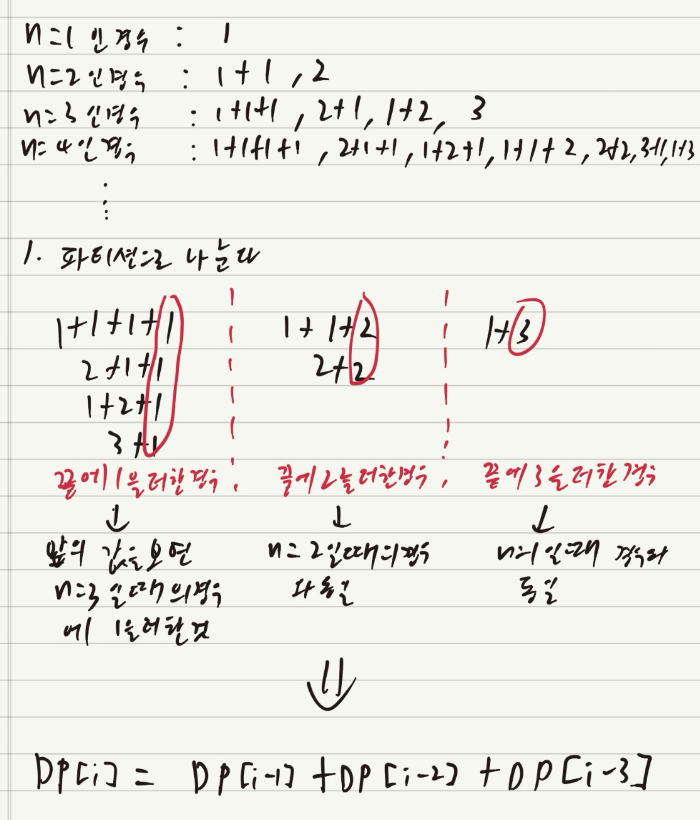 n=1 인경우 : 1
n=2 인경우 : 1+1 , 2
n=3 인경우 : 1+1+1 , 2+1, 1+2, 3
n=4 인경우 : 1+1+1+1 , 2+1+1, 1+2+1, 1+1+2, 2+2, 3+1, 1+3
1. 파티션으로 나눈다
1+1+1+1 1+1+2 1+3
2+1+1 2+2
1+2+1
3+1
끝에 1을 더한경우 끝에 2를 더한경우 끝에 3을 더한 경우
앞의 값을보면 n=2일때의경우 n=1일때 경우와
n=3일때의경우 와 동일 동일
에 1을더한것
DP[i] = DP[i-1] + DP[i-2] + DP[i-3]